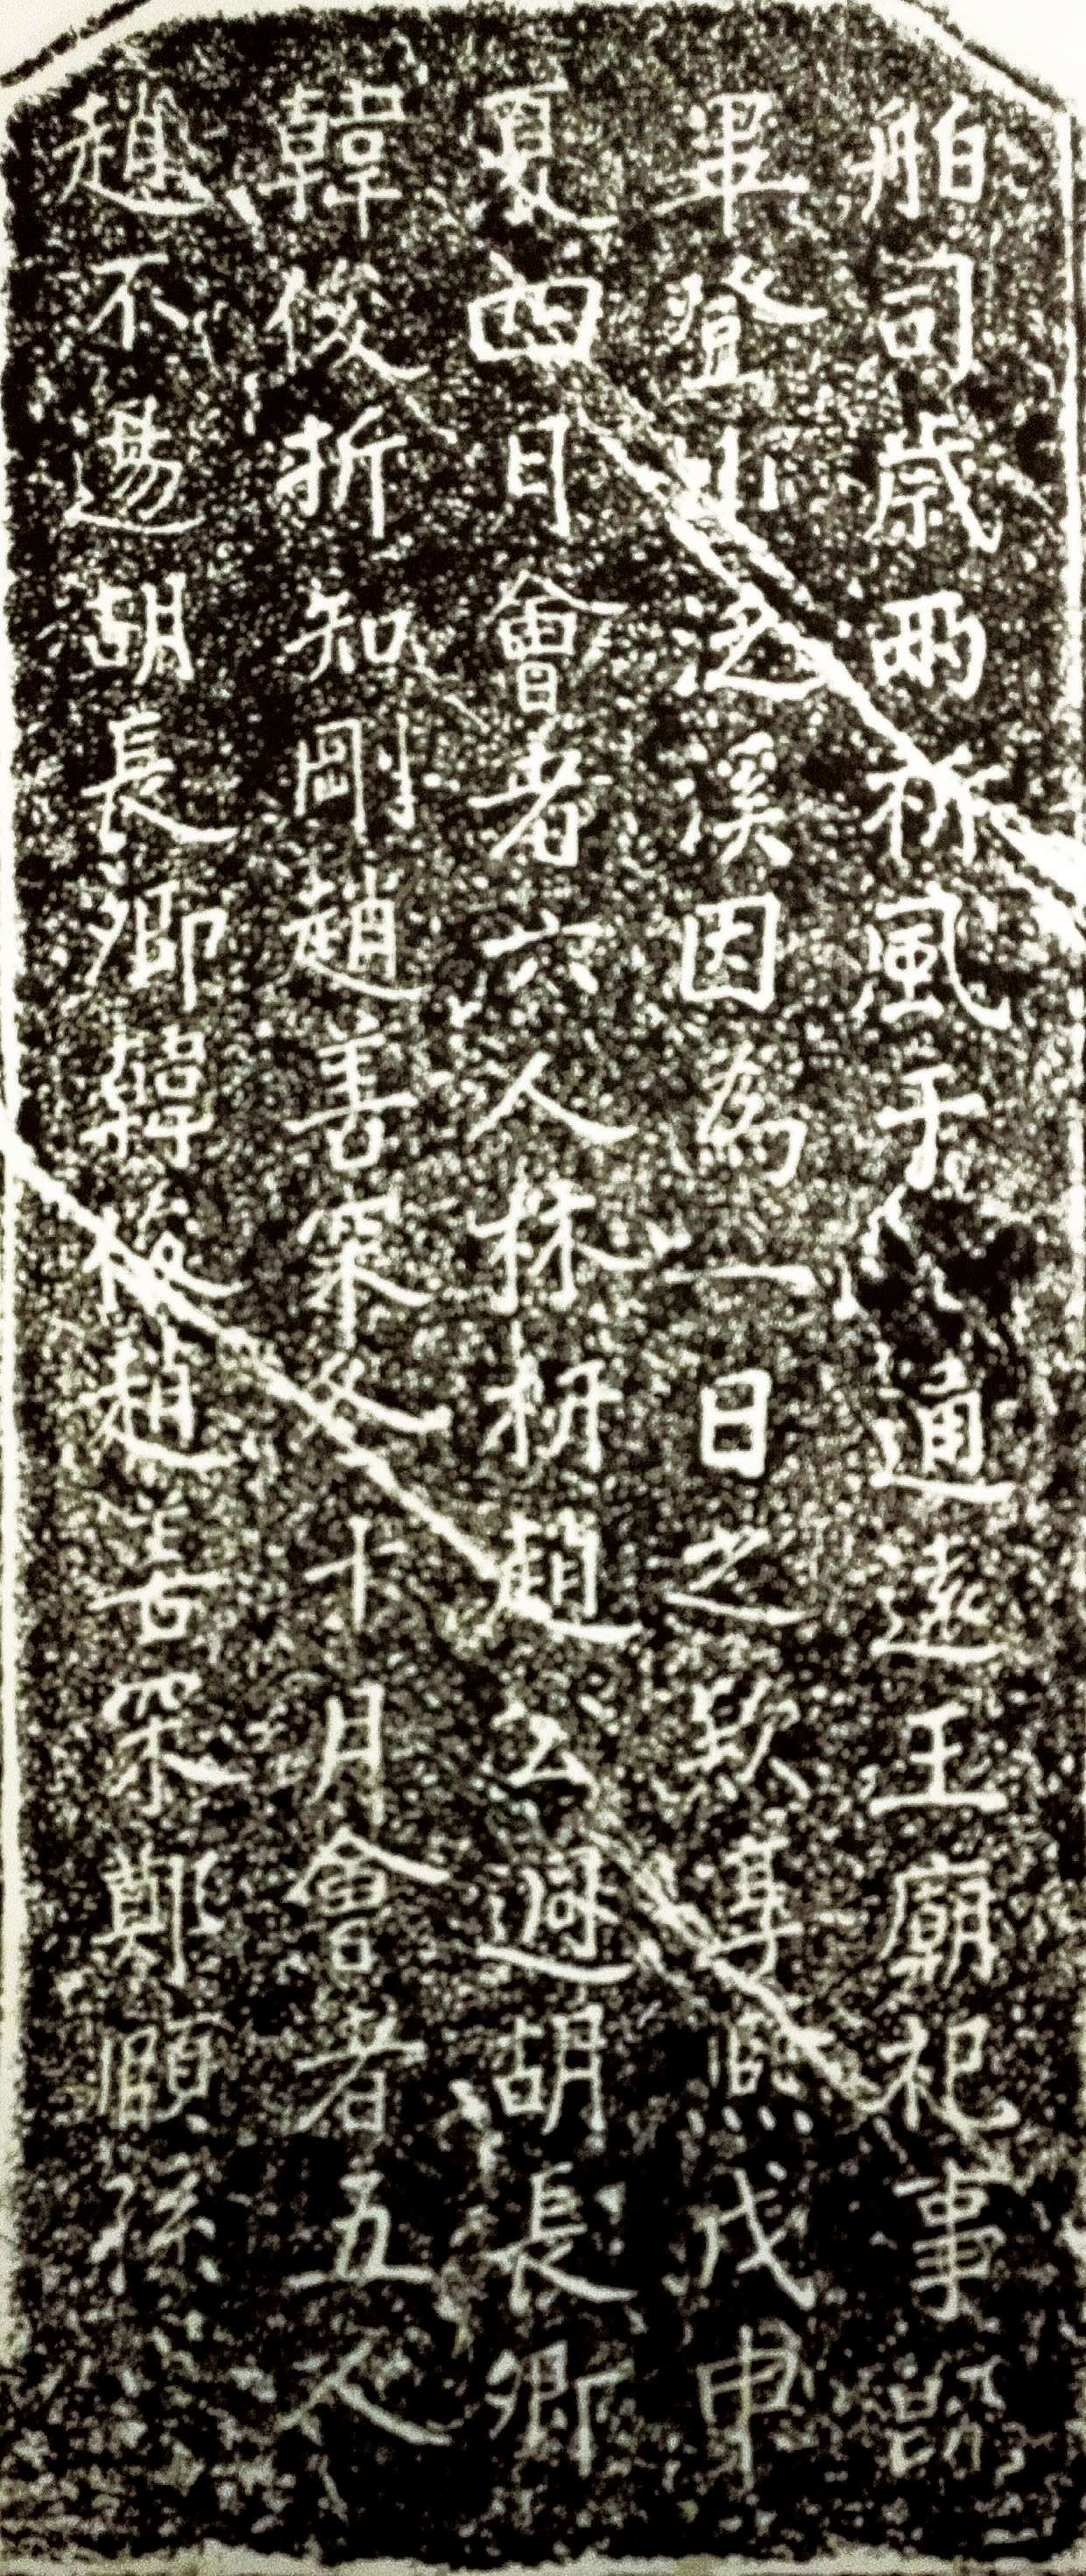 舶司歲兩祈風于通遠王廟祀事既
畢登山泛溪因為一日之款淳熙戊申
夏四月會者六人林枅趙公迥胡長卿
韓俊折知剛趙善采冬十月會者五人
趙不逷胡長卿韓俊趙善采鄭頤孫